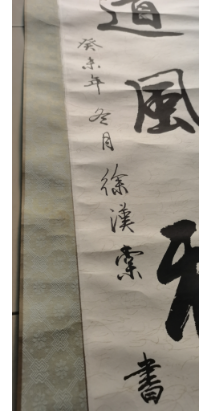 道風
癸未年冬月徐漢棠書